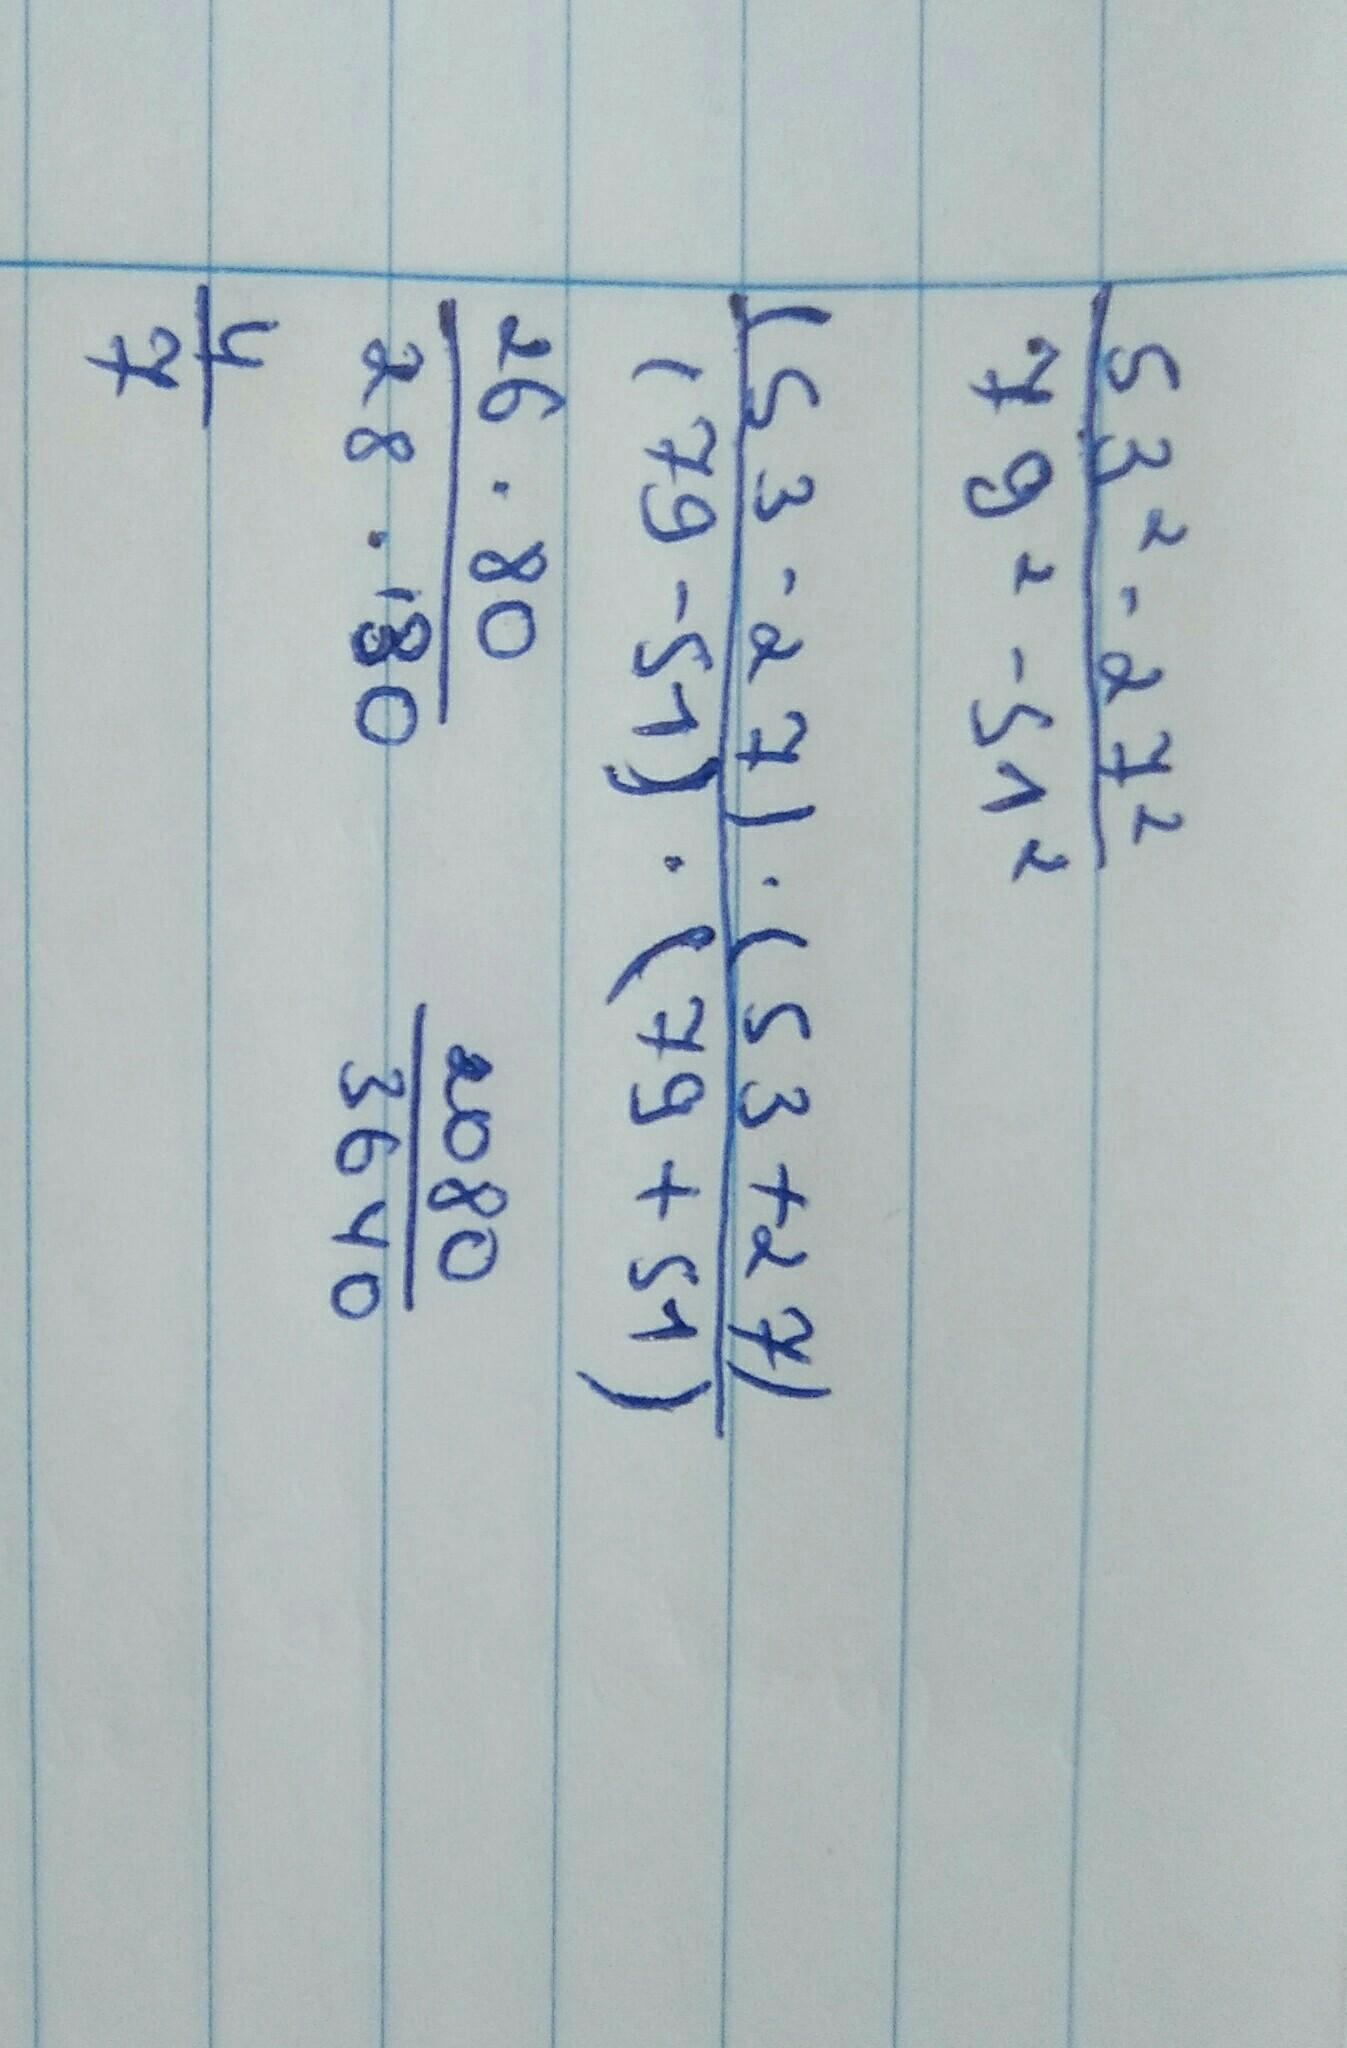 53² - 27²
79² - 51²
(53 - 27) · (53 + 27)
(79 - 51) · (79 + 51)
26 · 80
28 · 130
2080
3640
4
7